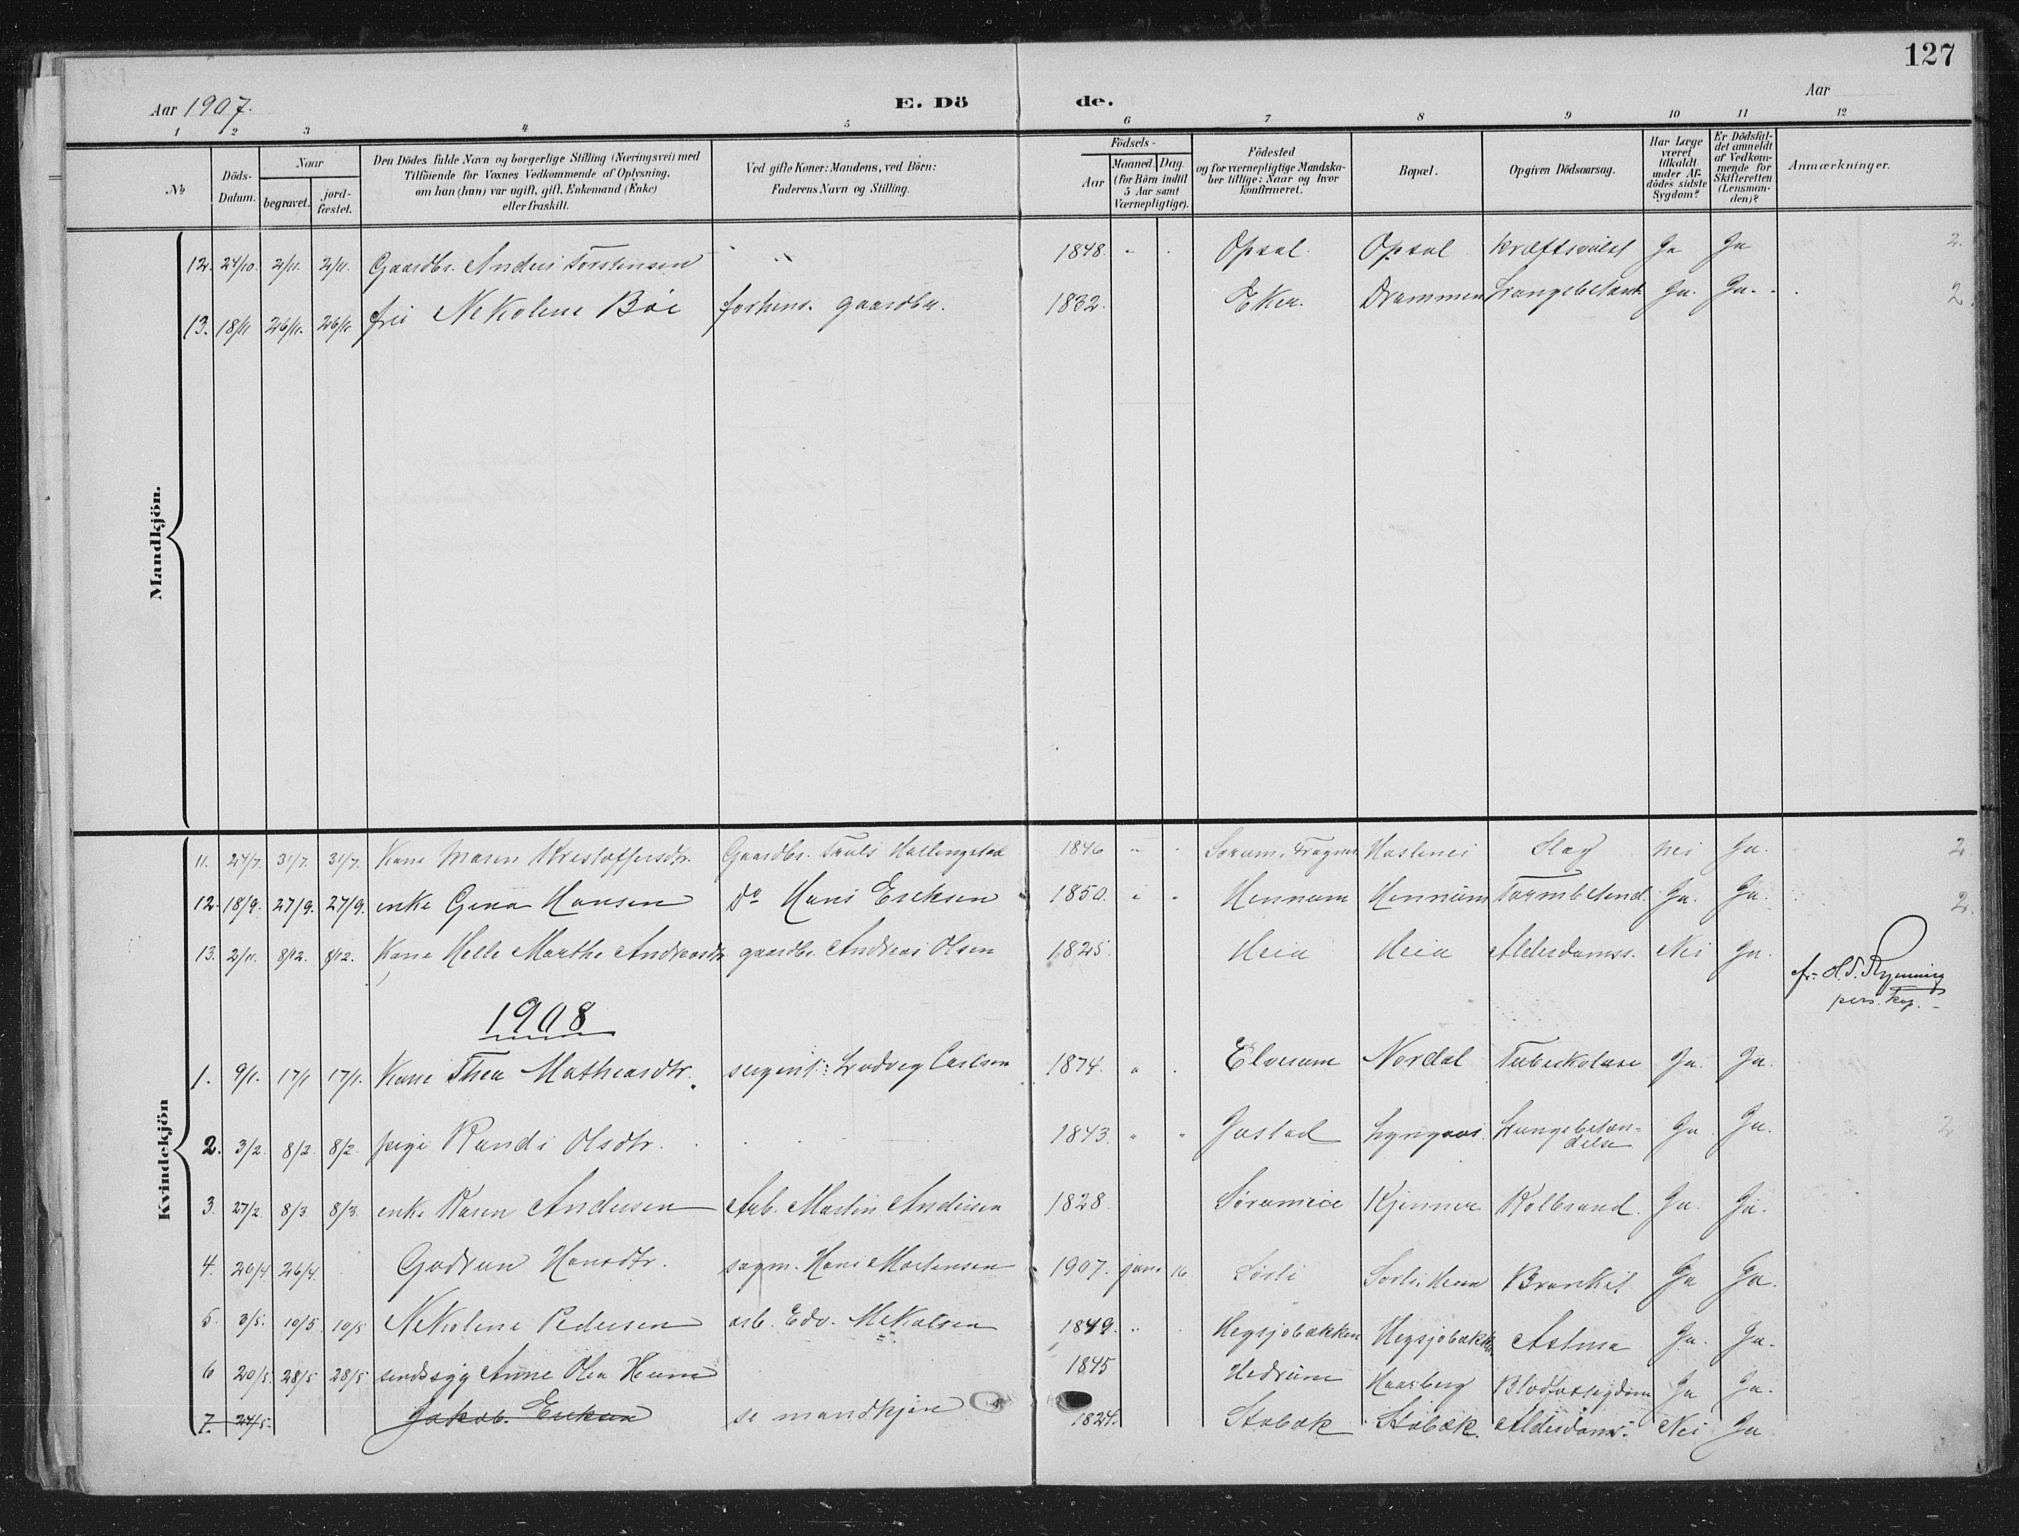 127
Aar 1907. E. Dö de. Aar
1 2 3 4 5 6 7 8 9 10 11 12
No
Döds-Datum.
Naar
begravet.
jord-fæstet.
Den Dödes fulde Navn og borgerlige Stilling (Næringsvei) med
Tilföiende for Voxnes Vedkommende af Oplysning,
om han (hun) var ugift, gift, Enkemand (Enke)
eller fraskilt.
Ved gifte Koner: Mandens, ved Börn:
Faderens Navn og Stilling.
Födsels-
Aar
Maaned. Dag.
(for Börn indtil
5 Aar samt
Værnepligtige).
Födested
og for værnepligtige Mandska-
ber tillige: Naar og hvor
konfirmeret.
Bopæl.
Opgiven Dödsaarsag.
Har Læge
været
tilkaldt
under Af-
dödes sidste
Sygdom?
Er Dödsfal-
det anmeldt
af Vedkom-
mende for
Skifteretten
(Lensman-
den)?
Anmærkninger.
Mandkjön.
12. 24/10. 2/11. 2/11. Gaardbr. Anders Torstensen " 1848. Opsal. Opsal Kræftsvulst Ja Ja 2.
13. 18/11 26/11. 26/11. frii Nekolene Böe forhens. gaardbr. 1832. Eker. Drammen Lungebetænd. Ja. Ja. 2.
Kvindekjön
11. 24/7. 31/7. 31/7. Kone Maren Kristoffersdtr. Gaardbr. Truls Hallingstad 1846 Haslenes Slag Nei Ja. 2
12. 18/9. 27/9. 27/9. enke Gina Hansen Do Hans Eriksen 1850. Hennum Hennum Tarmbetænd. Ja. Ja. 2.
13. 2/11. 8/12. 8/12. Kone Helle Marthe Andreasdtr. gaardbr. Andreas Olsen 1825. Heia Heia Alderdomss. Nei Ja.
pers. kap.
1908
1. 9/1. 17/1 17/1. Kone Thea Mathiasdtr. sergent: Ludvig Carlsen 1874. Elverum Nordal Tuberkolose Ja. Ja.
2. 3/2. 8/2. 8/2. pige Randi Olsdtr. 1843. " " Gastad Lyngaas. Lungebetæn-
delse Ja Ja. 2
3. 27/2. 8/3. 8/3. enke Karen Andersen Arb. Martin Andersen 1828. Kjenner. Kolbrand. Ja. Ja.
4. 20/4. 26/4. Gudrun Hansdtr. sagm. Hans Mortensen 1907. juni 16 Sörli Bronkit. Ja Ja.
5. 3/5. 10/5 10/5 Nekolene Pedersen arb. Edv. Mekalsen 1849. Hegsjöbakken Hegsjöbakken Astma Ja. Ja.
6 20/5. 28/5 28/5 sindssyg Anne Olea Hem 1845 Hedrum Haarberg Ja Ja.
7. 24/5. Jakob. Eriksen se mandkjön 1824. Stabæk Stabæk. Alderdoms. Nei Ja